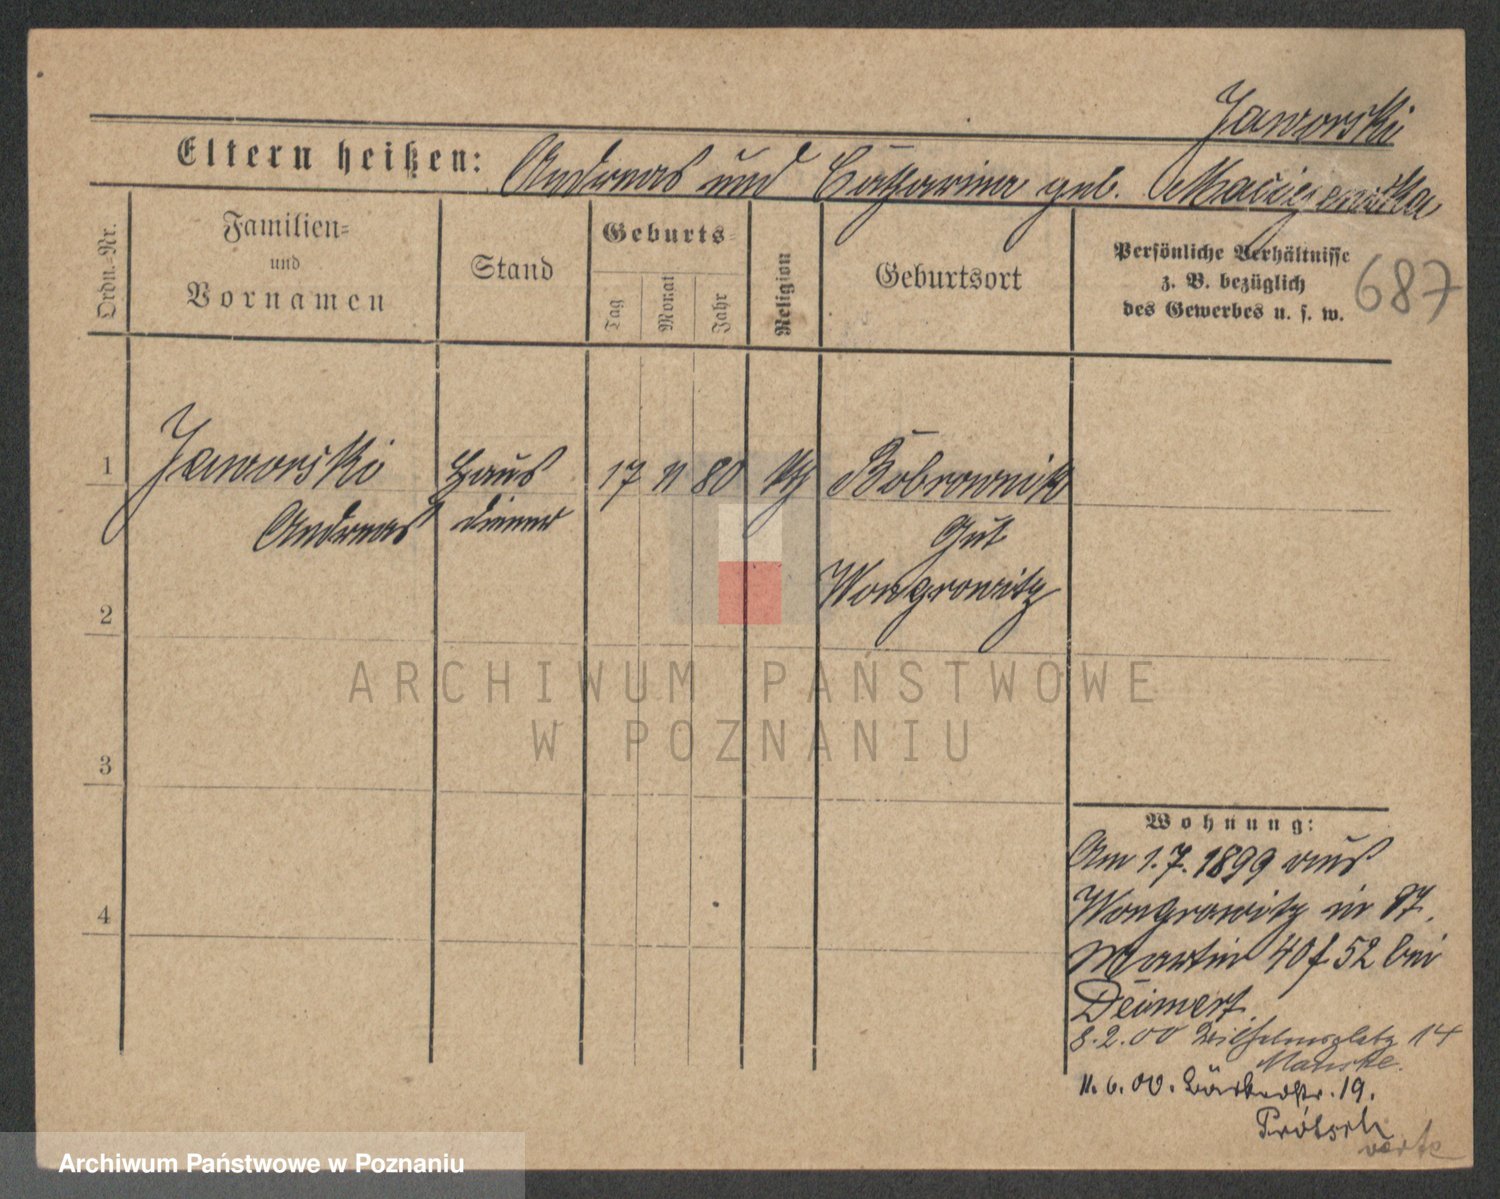 Jaworski
Eltern heißen: Andreas und Catharina geb.
Ordn.-Nr.
Familien-
und
Vornamen
Stand
Geburts-
Tag
Monat
Jahr
Religion
Geburtsort
Persönliche Verhältnisse
z. B. bezüglich
des Gewerbes u. s. w.
687
1
Jaworski Haus 17 11 80 kth Bobrownik
Andreas diener Gut
Wongrowitz
2
3
4
ARCHIWUM PAŃSTWOWE
W POZNANIU
Wohnung:
Am 1.7.1899 aus
Wongrowitz in St.
Martin 40 f 52 bei
8.2.00 Wilhelmsplatz 14
Manske.
11.6.00. Bäckerstr. 19.
verte
Archiwum Państwowe w Poznaniu